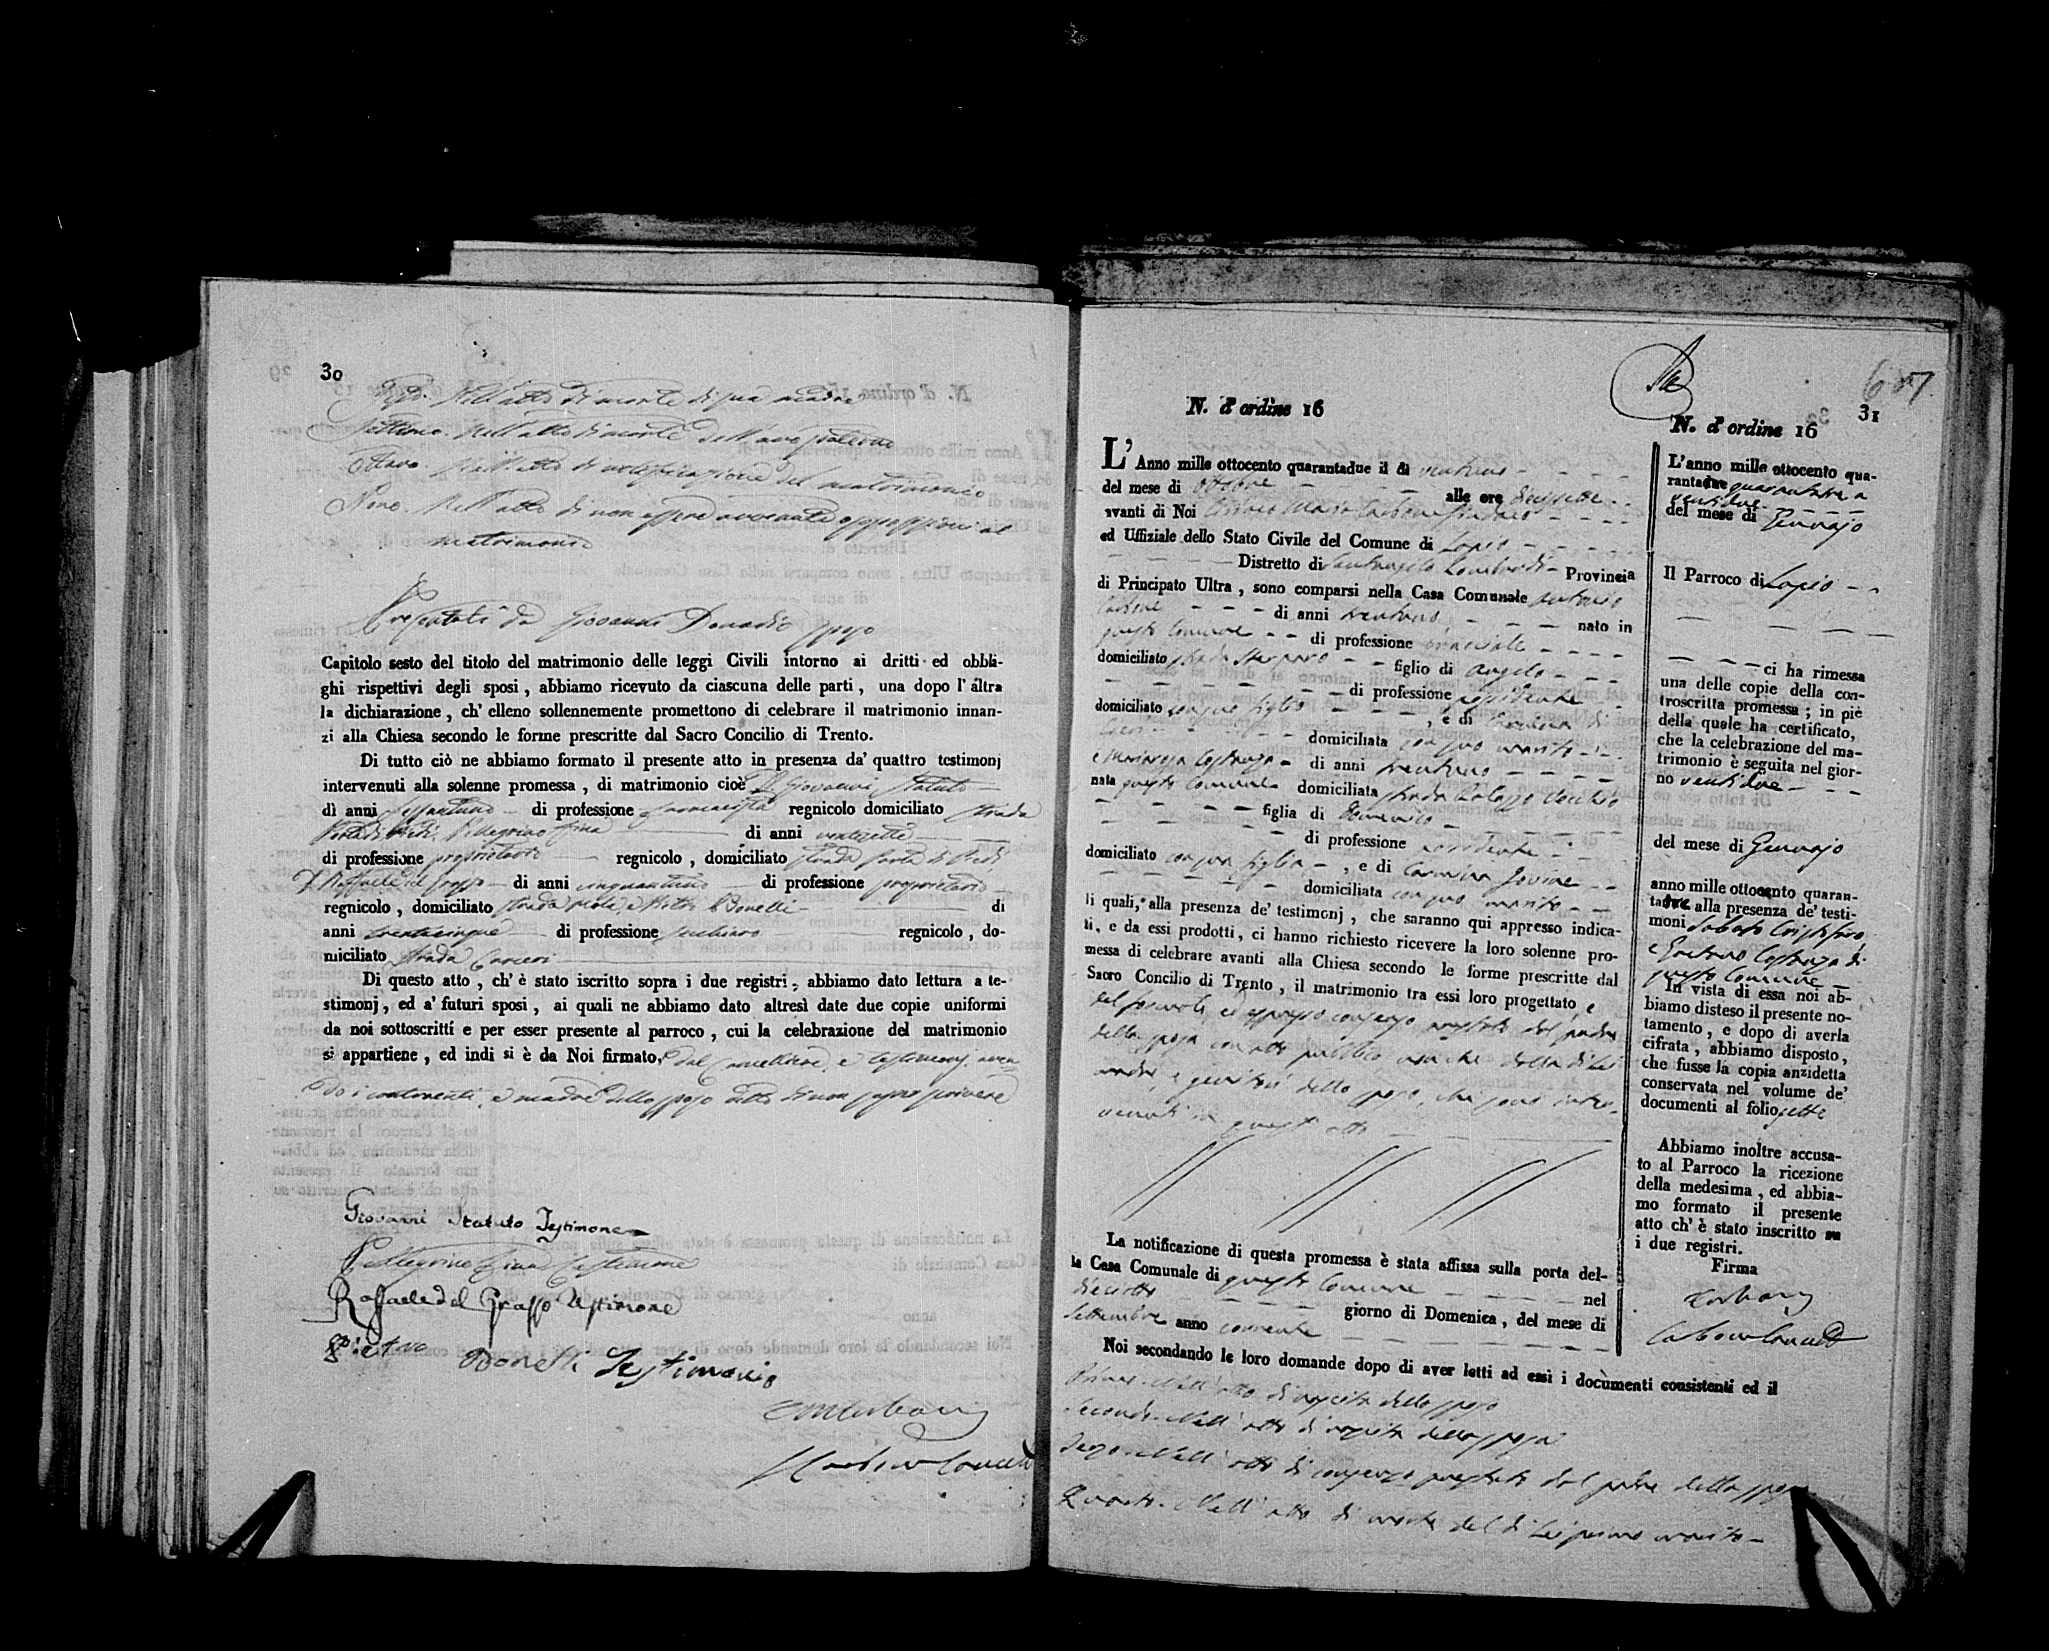 30
Sesto. Nell'atto di morte di sua madre
Settimo. Nell'atto di morte dell'avo paterno
Ottavo. Nell'atto di notificazione del matrimonio
Nono. Nell'atto di non essere avvenute opposizioni al
matrimonio
Presentati da Giovanni Donadio sposo
Capitolo sesto del titolo del matrimonio delle leggi Civili intorno ai dritti ed obbli-
ghi rispettivi degli sposi, abbiamo ricevuto da ciascuna delle parti, una dopo l'áltra
la dichiarazione, ch'elleno sollennemente promettono di celebrare il matrimonio innan-
zi alla Chiesa secondo le forme prescritte dal Sacro Concilio di Trento.
Di tutto ciò ne abbiamo formato il presente atto in presenza da' quattro testimonj
intervenuti alla solenne promessa, di matrimonio cioè D. Giovanni Statuto
di anni sessantuno di professione farmacista regnicolo domiciliato strada
Porta di Piedi, Pellegrino di anni ventisette
di professione proprietario regnicolo, domiciliato strada porta di Piedi,
D. Raffaele del Grosso di anni cinquantuno di professione proprietario
regnicolo, domiciliato strada e Pietro Bonelli di
anni trentacinque di professione regnicolo, do-
miciliato strada Carceri
Di questo atto, ch'è stato iscritto sopra i due registri, abbiamo dato lettura a te-
stimonj, ed a' futuri sposi, ai quali ne abbiamo dato altresì date due copie uniformi
da noi sottoscritti e per esser presente al parroco, cui la celebrazione del matrimonio
si appartiene, ed indi si è da Noi firmato, dal Cancelliere, e testimonj, aven
do i contraenti, e madre dello sposo detto di non saper scrivere
Giovanni Statuto Testimone
Pellegrino Testimone
Raffaele del Grosso Testimone
Pietro Bonelli Testimonio
N. d'ordine 16
L'Anno mille ottocento quarantadue il dì ventuno
del mese di Ottobre alle ore diciassette
avanti di Noi Carbone Sindaco
ed Uffiziale dello Stato Civile del Comune di Lapio
Distretto di Santangelo Lombardi Provincia
di Principato Ultra, sono comparsi nella Casa Comunale Antonio
Carbone di anni trentuno nato in
questo Comune di professione bracciale
domiciliato strada figlio di Angelo
di professione possidente
domiciliato con suo figlio, e di
domiciliata con suo marito
e Mariarosa Costanza di anni trentuno
nata questo Comune domiciliata strada Palazzo Vecchio
figlia di Domenico
di professione possidente
domiciliato con sua figlia, e di Carmina Iovine
domiciliata con suo marito
li quali, alla presenza de' testimonj, che saranno qui appresso indica-
ti, e da essi prodotti, ci hanno richiesto ricevere la loro solenne pro-
messa di celebrare avanti alla Chiesa secondo le forme prescritte dal
Sacro Concilio di Trento, il matrimonio tra essi loro progettato, e
del formale, ed espresso consenso prestato dal padre
della sposa con atto pubblico non che della di lei
madre, e genitori dello sposo, che sono inter-
venuti in questo atto
La notificazione di questa promessa è stata affissa sulla porta del-
la Casa Comunale di questo Comune nel
dieciotto giorno di Domenica, del mese di
Settembre anno corrente
Noi secondando le loro domande dopo di aver letti ad essi i documenti consistenti ed il
Primo. Nell'atto di nascita dello sposo
Secondo. Nell'atto di nascita della sposa
Terzo. Nell'atto di consenso prestato dal padre della sposa
Quarto. Nell'atto di morte del di lei primo marito
31
N. d'ordine 16
L'anno mille ottocento qua-
rantadue quarantatre a
ventidue
del mese di Gennajo
Il Parroco di Lapio
ci ha rimessa
una delle copie della con-
troscritta promessa; in piè
della quale ha certificato,
che la celebrazione del ma-
trimonio è seguita nel gior-
no ventidue
del mese di Gennajo
anno mille ottocento quaran-
tatre alla presenza de' testi-
moni Sabato
e Gaetano Costanza di
questo Comune
In vista di essa noi ab-
biamo disteso il presente no-
tamento, e dopo di averla
cifrata, abbiamo disposto,
che fusse la copia anzidetta
conservata nel volume de'
documenti al folio sette
Abbiamo inoltre accusa-
to al Parroco la ricezione
della medesima, ed abbia-
mo formato il presente
atto ch'è stato inscritto su
i due registri.
Firma